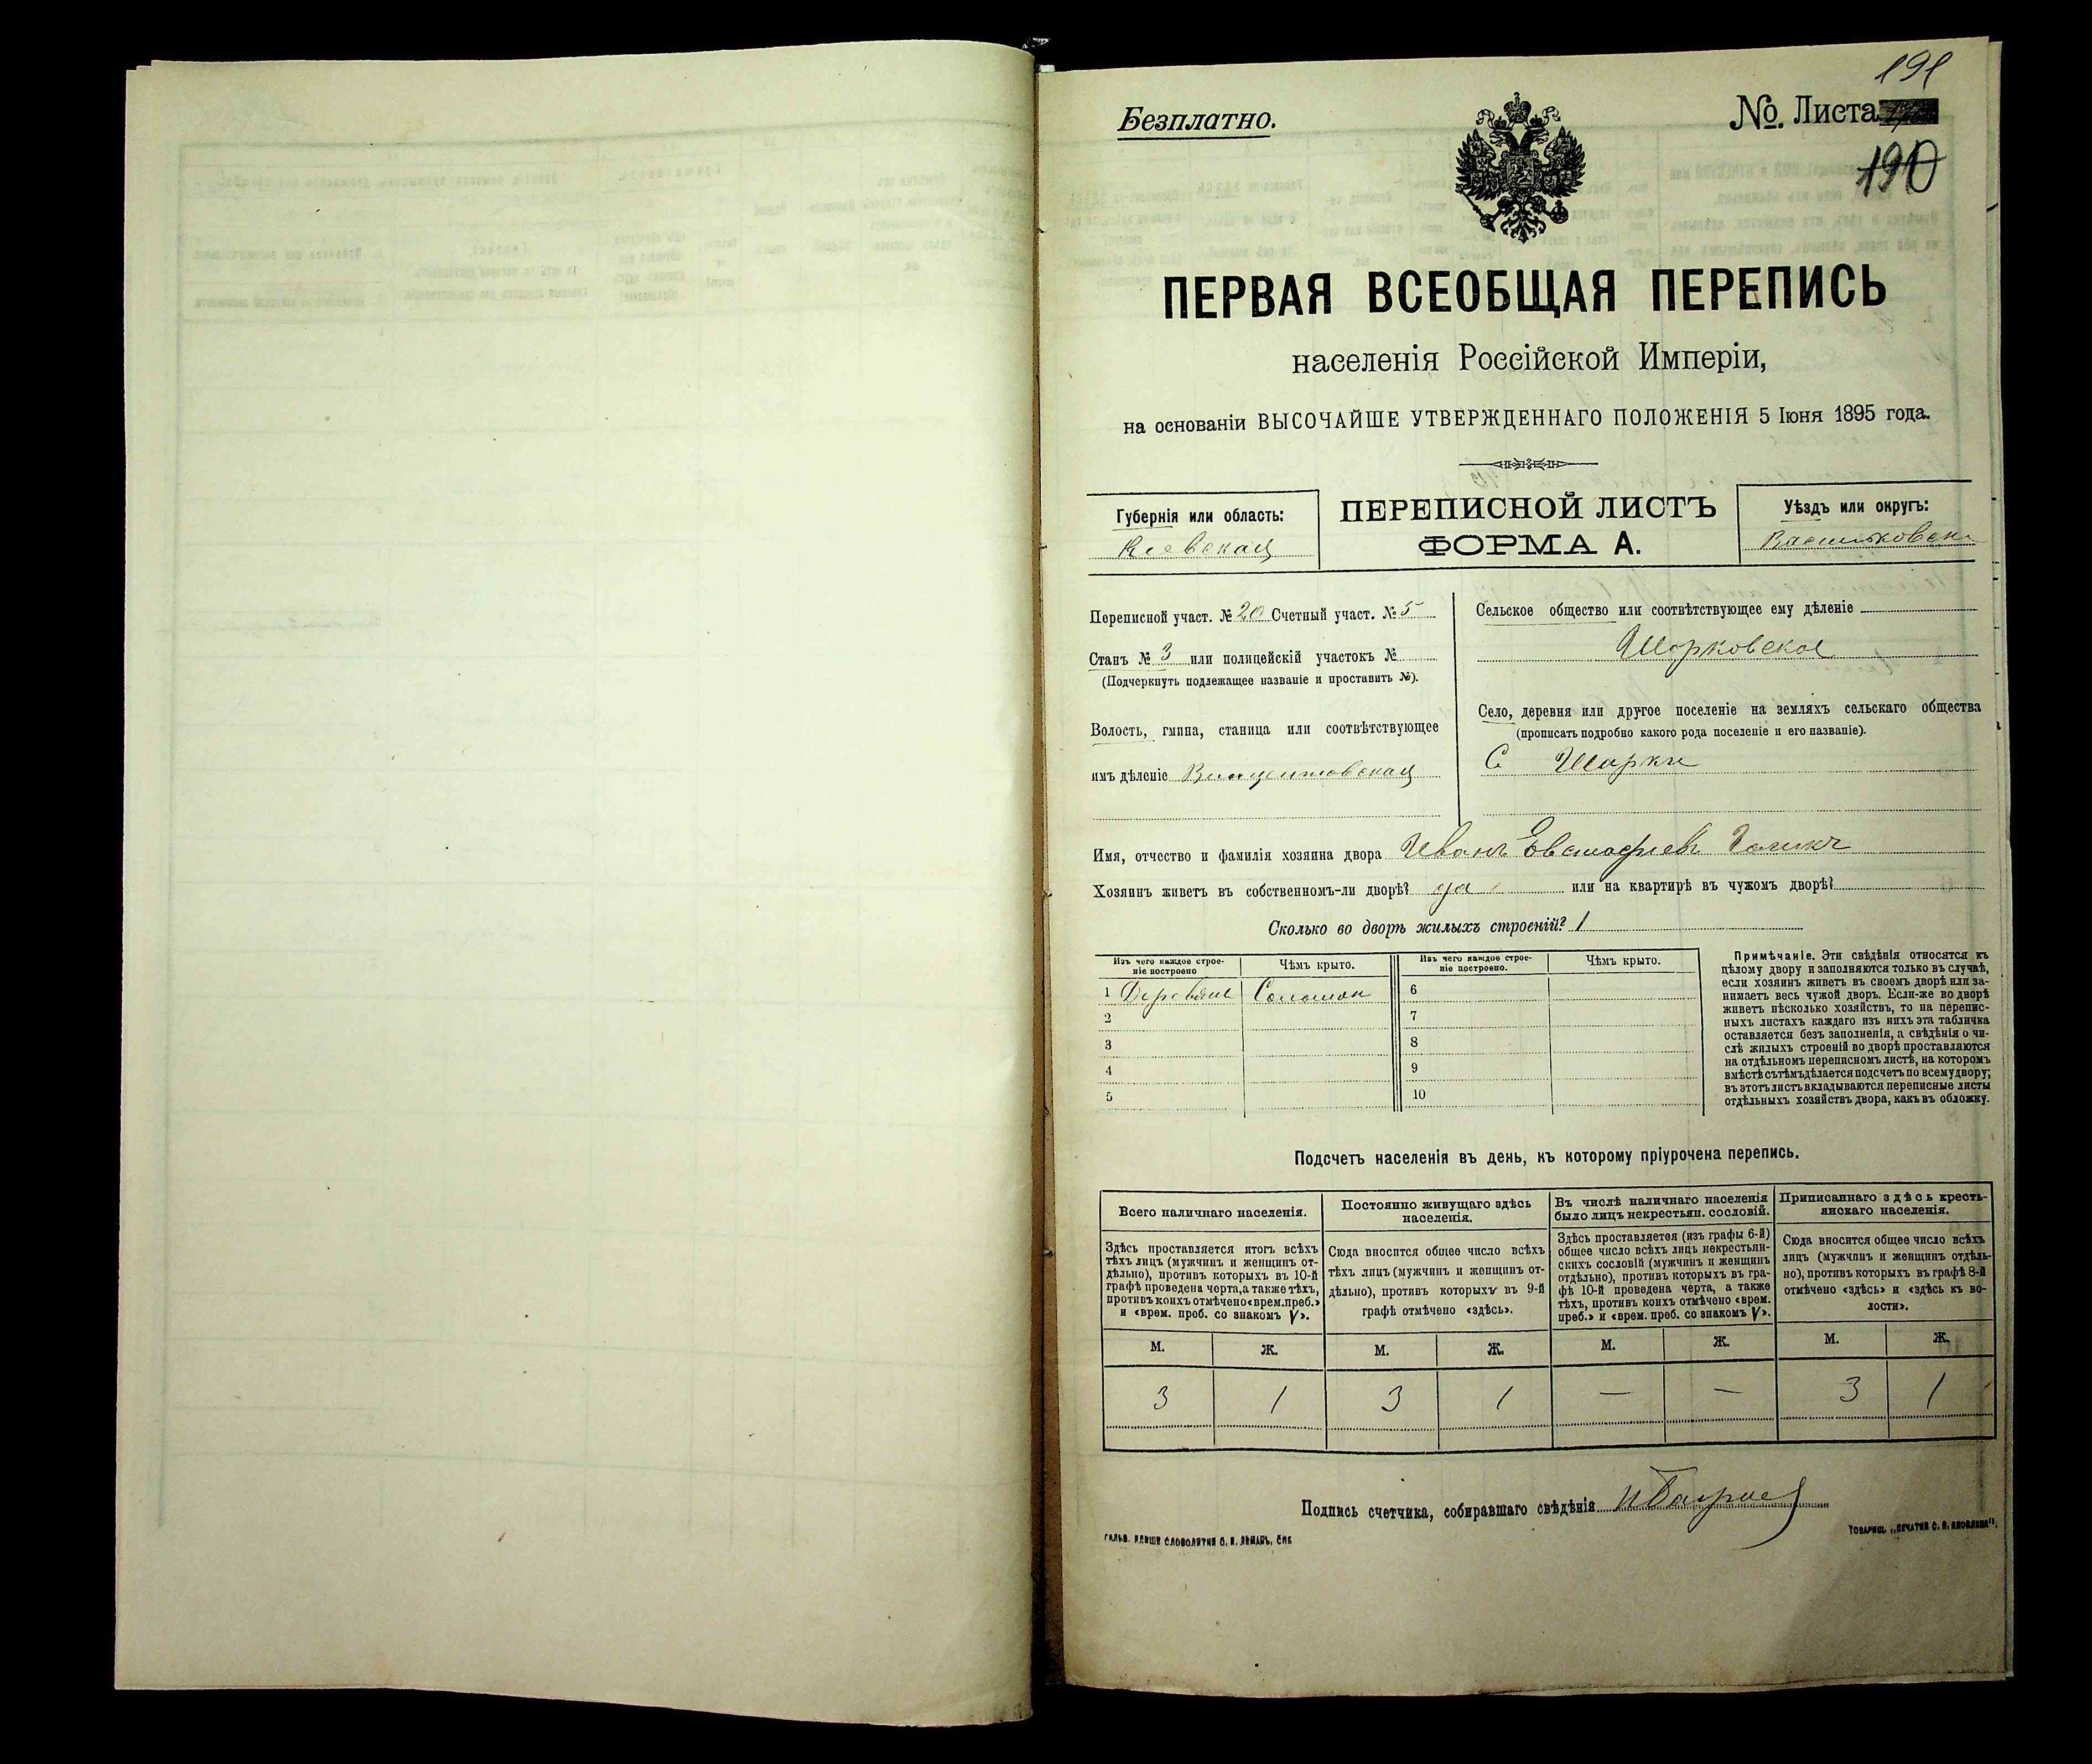 191
Безплатно.
№. Листа
190
ПЕРВАЯ ВСЕОБЩАЯ ПЕРЕПИСЬ
населенія Россійской Имперіи,
на основаніи ВЫСОЧАЙШЕ УТВЕРЖДЕННАГО ПОЛОЖЕНІЯ 5 Іюня 1895 года.
Губернія или область:
Кіевская
ПЕРЕПИСНОЙ ЛИСТЪ
ФОРМА А.
Уѣздъ или округъ:
Васильковск
Переписной участ. № 20 Счетный участ. № 5
Станъ № 3 или полицейскій участокъ №
(Подчеркнуть подлежащее названіе и проставить №).
Волость, гмина, станица или соотвѣтствующее
имъ дѣленіе Винцентовская
Сельское общество или соотвѣтствующее ему дѣленіе
Шарковское
Село, деревня или другое поселеніе на земляхъ сельскаго общества
(прописать подробно какого рода поселеніе и его названіе).
С Шарки
Имя, отчество и фамилія хозяина двора Иванъ Евстафіевъ
Хозяинъ живетъ въ собственномъ-ли дворѣ? да или на квартирѣ въ чужомъ дворѣ?
Сколько во дворѣ жилыхъ строеній? 1
Изъ чего каждое строе-
ніе построено
Чѣмъ крыто.
Изъ чего каждое строе-
ніе построено.
Чѣмъ крыто.
1 Деревяне Соломон 6
2 7
3 8
4 9
5 10
Примѣчаніе. Эти свѣдѣнія относятся къ
цѣлому двору и заполняются только въ случаѣ,
если хозяинъ живетъ въ своемъ дворѣ или за-
нимаетъ весь чужой дворъ. Если-же во дворѣ
живетъ нѣсколько хозяйствъ, то на перепис-
ныхъ листахъ каждаго изъ нихъ эта табличка
оставляется безъ заполненія, а свѣдѣнія о чи-
слѣ жилыхъ строеній во дворѣ проставляются
на отдѣльномъ переписномъ листѣ, на которомъ
вмѣстѣ съ тѣмъ дѣлается подсчетъ по всему двору;
въ этотъ листъ вкладываются переписные листы
отдѣльныхъ хозяйствъ двора, какъ въ обложку.
Подсчетъ населенія въ день, къ которому пріурочена перепись.
Всего наличнаго населенія.
Здѣсь проставляется итогъ всѣхъ
тѣхъ лицъ (мужчинъ и женщинъ от-
дѣльно), противъ которыхъ въ 10-й
графѣ проведена черта, а также тѣхъ,
противъ коихъ отмѣчено «врем. преб.»
и «врем. преб. со знакомъ V».
Постоянно живущаго здѣсь
населенія.
Сюда вносится общее число всѣхъ
тѣхъ лицъ (мужчинъ и женщинъ от-
дѣльно), противъ которыхъ въ 9-й
графѣ отмѣчено «здѣсь».
Въ числѣ наличнаго населенія
было лицъ некрестьян. сословій.
Здѣсь проставляется (изъ графы 6-й)
общее число всѣхъ лицъ некрестьян-
скихъ сословій (мужчинъ и женщинъ
отдѣльно), противъ которыхъ въ гра-
фѣ 10-й проведена черта, а также
тѣхъ, противъ коихъ отмѣчено «врем.
преб.» и «врем. преб. со знакомъ V».
Приписаннаго здѣсь кресть-
янскаго населенія.
Сюда вносится общее число всѣхъ
лицъ (мужчинъ и женщинъ отдѣль-
но), противъ которыхъ въ графѣ 8-й
отмѣчено «здѣсь» и «здѣсь къ во-
лости».
М. Ж. М. Ж. М. Ж. М. Ж.
3 1 3 1 — — 3 1
Подпись счетчика, собиравшаго свѣдѣнія
ГАЛЬВ. КЛИШЕ СЛОВОЛИТНИ О. И. ЛЕМАНЪ, СПБ
ТОВАРИЩ. „ПЕЧАТНЯ С. П. ЯКОВЛЕВА".